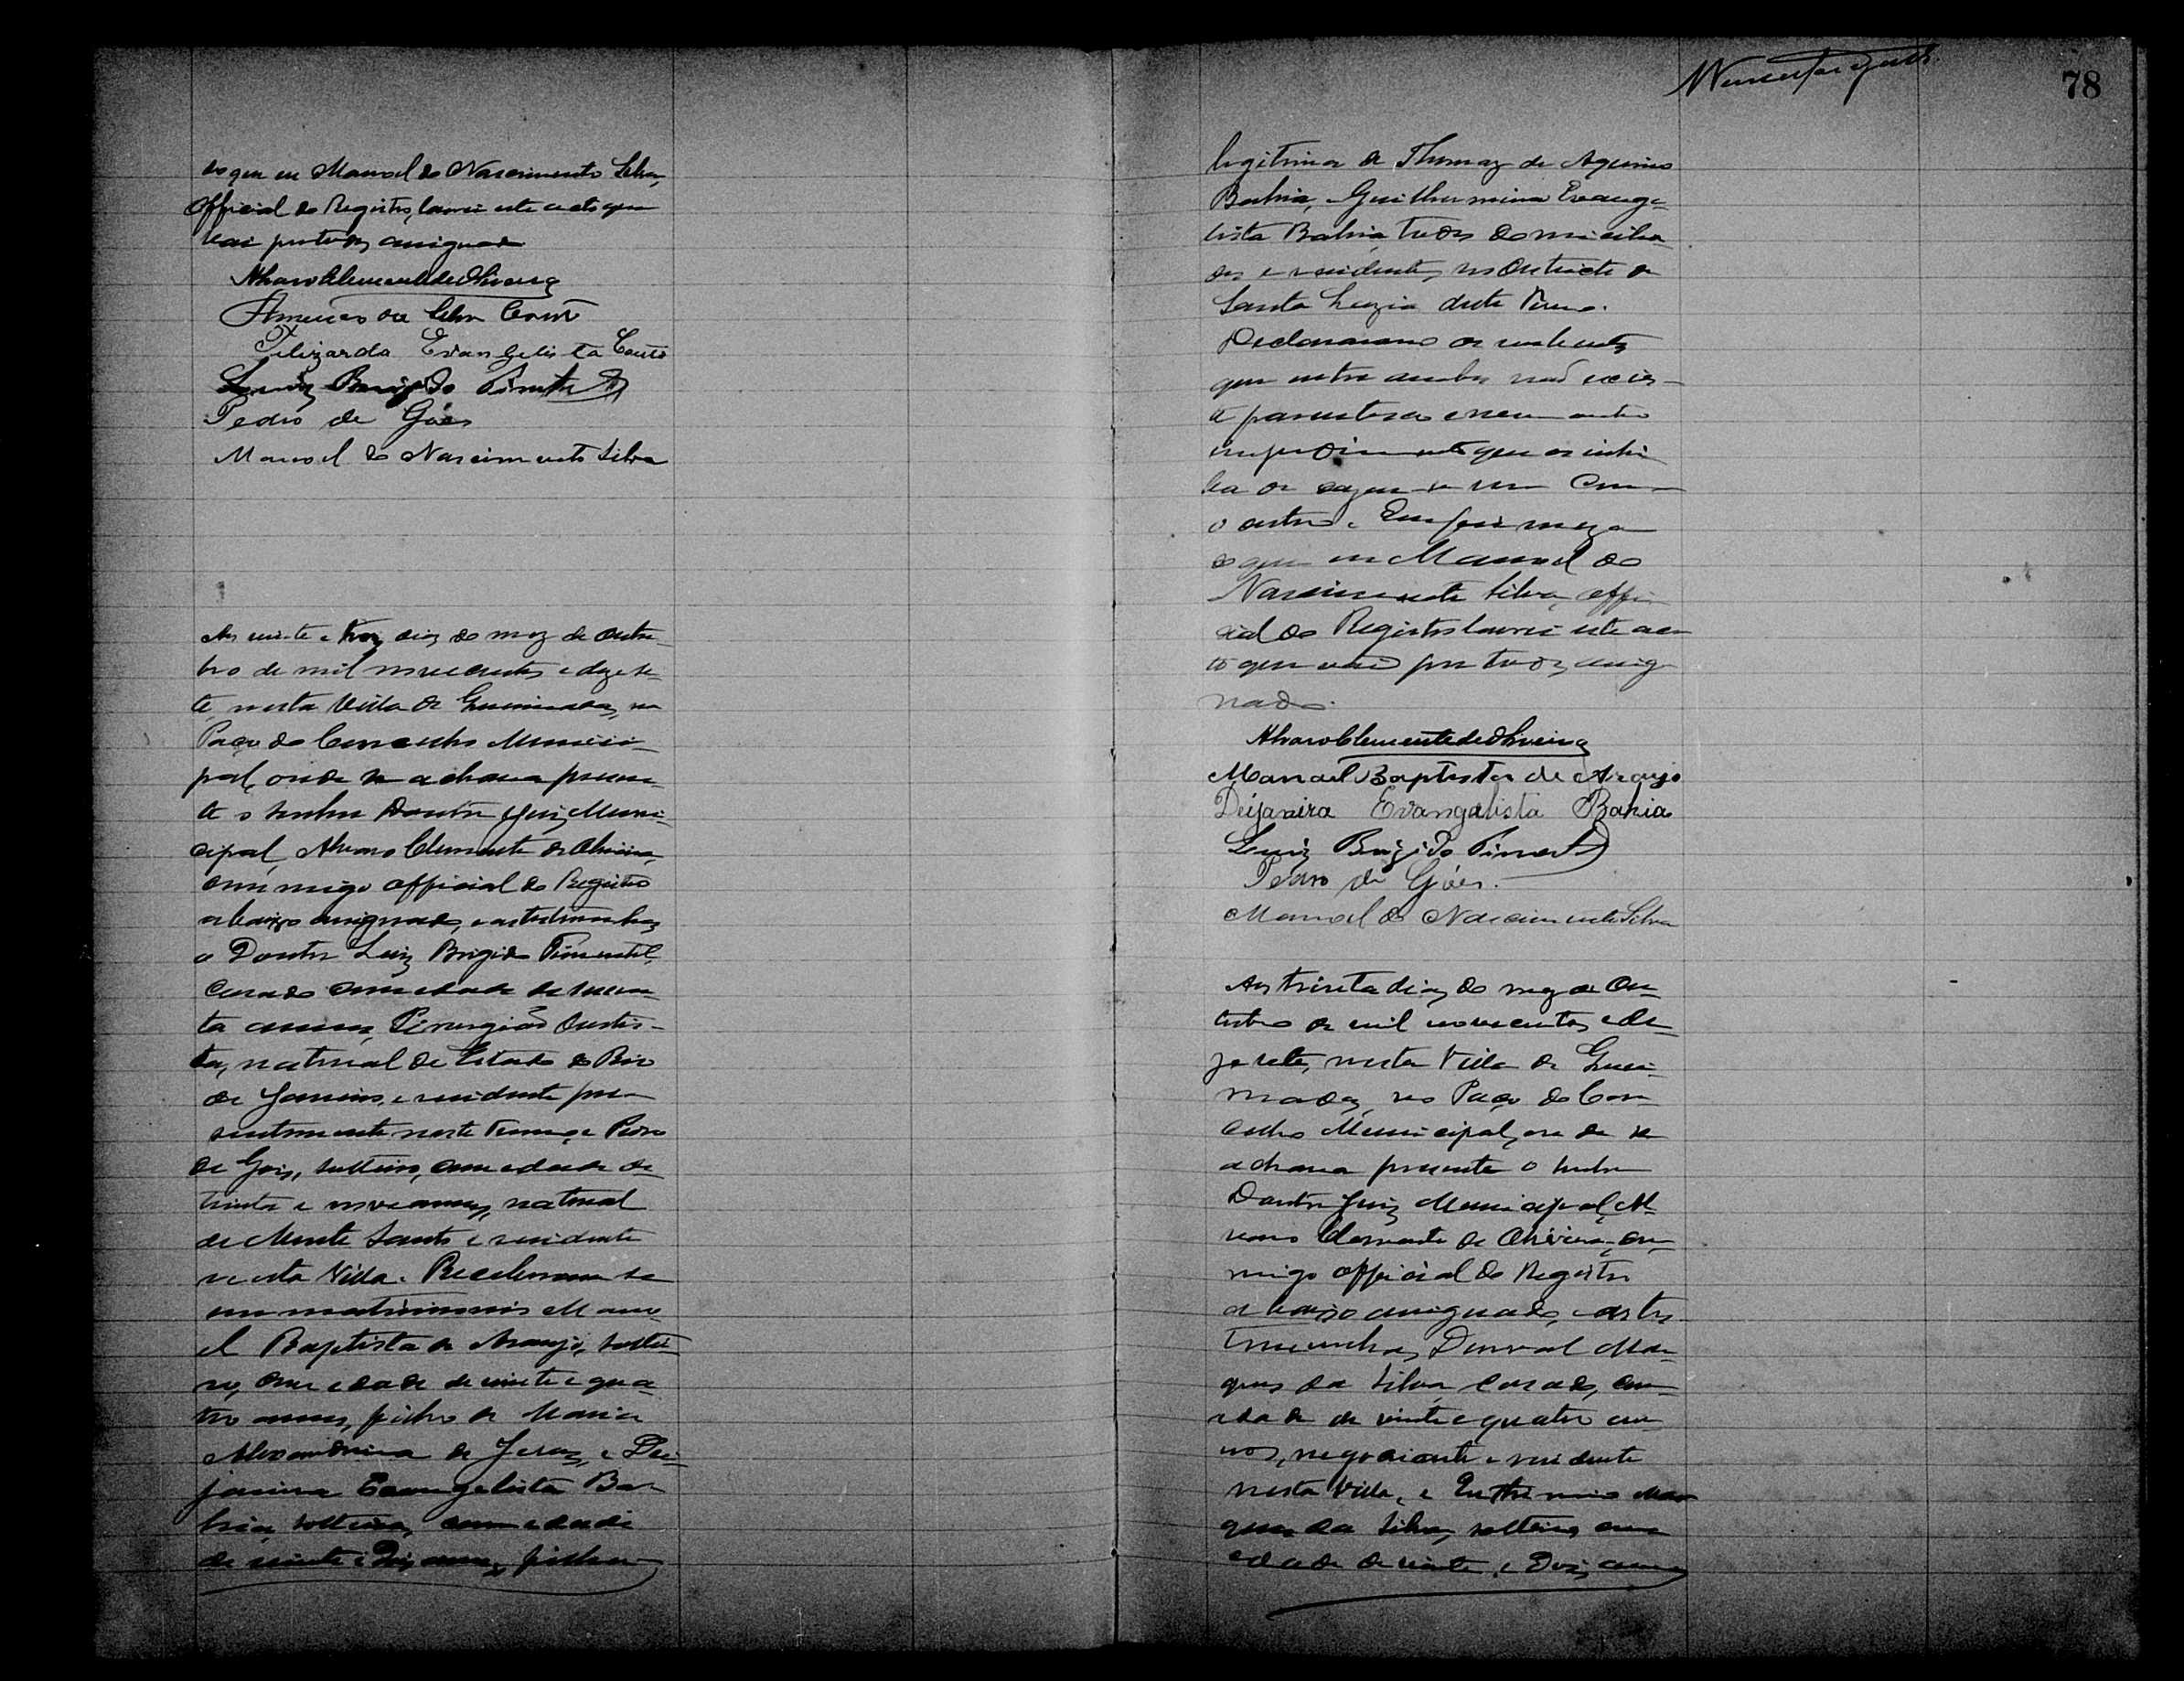 do que eu Manoel do Nascimento Silva,
Official do Registro, lavrei este acto que
vai por todos assignado
Alvaro Clemente de Oliveira
Americo da Silva Couto
Felizarda Evangelista Couto
Luiz Brigido Pimentel
Pedro de Góes
Manoel do Nascimento Silva
Aos vinte e tres dias do mez de Outu-
bro de mil novecentos e dezese-
te, nesta Villa de Queimadas, no
Paço do Conselho Munici-
pal, onde se achava presen-
te o senhor Doutor Juiz Muni-
cipal, Alvaro Clemente de Oliveira,
commigo official do Registro
abaixo assignado, e as testemunhas
o Doutor Luiz Brigido Pimentel,
casado com edade de
ta annos, Cirurgião Dentis-
ta, natural do Estado do Rio
de Janeiro, e residente pre-
sentemente neste Termo, e Pedro
de Goes, solteiro, com edade de
trinta e nove annos, natural
de Monte Santo e residente
nesta Villa. Receberam se
em matrimonio Mano-
el Baptista de Araujo, soltei-
ro, com edade de vinte e qua-
tro annos, filho de Maria
Alexandrina de Jesus, e Dei-
janira Evangelista Ba-
hia, solteira, com edade
de vinte e dois annos, filha
78
legitima de Thomaz de Aquino
Bahia, e Guilhermina Evange-
lista Bahia todos domicilia-
dos e residentes no Districto de
Santa Luzia deste Termo.
Declararam os nubentes
que entre ambos não exis-
te parentesco e nem outro
impedimento que os inhi-
ba de cazar-se um com
o outro. Em firmeza
do que eu Manoel do
Nascimento Silva, offi-
cial do Registro lavrei este ac-
to que vai por todos assig-
nado.
Alvaro Clemente de Oliveira
Manoel Baptista de Araujo
Deijanira Evangelista Bahia
Luiz Brigido Pimentel
Pedro de Góes.
Manoel do Nascimento Silva
Aos trinta dias do mez de Ou-
tubro de mil novecentos e de-
zesete, nesta Villa de Quei-
madas, no Paço do Con-
selho Municipal, onde se
achava presente o senhor
Doutor Juiz Municipal, Al-
varo Clemente de Oliveira, com-
migo official do Registro
abaixo assignado, e as tes-
temunhas, Durval Mar-
ques da Silva, casado, com
edade de vinte e quatro an-
nos, negociante e residente
nesta Villa, e Euthimio Mar-
ques da Silva, solteiro, com
edade de vinte e dois annos